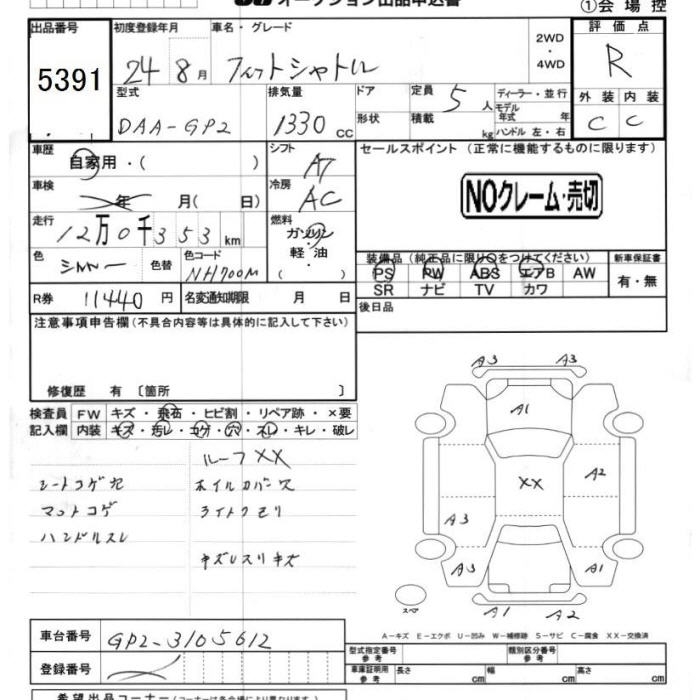 オークション出品申込書
①会場控
出品番号 5391
初度登録年月 24 8月
車名・グレード フィットシャトル
2WD
・4WD
評価点 R
型式 DAA-GP2
排気量 1330 CC
ドア
形状
定員 5人
積載 kg
ディーラー・並行
モデル年式 年
ハンドル 左・右
外装 C
内装 C
車歴 自家用・( )
シフト AT
セールスポイント (正常に機能するものに限ります)
車検 年 月( 日)
冷房 AC
NOクレーム・売切
走行 12万0千353km
燃料 ガソリン
軽油
( )
色 シルバー
色替
色コード NH700M
装備品 (純正品に限り○をつけてください)
新車保証書
PS PW ABS エアB AW
有・無
SR ナビ TV カワ
R券 11440円
名変通知期限 月 日
後日品
注意事項申告欄(不具合内容等は具体的に記入して下さい)
修復歴 有 〔箇所 〕
検査員 FW キズ・飛石・ヒビ割・リペア跡・×要
記入欄 内装 キズ・汚レ・コゲ・穴・スレ・キレ・破レ
ルーフXX
シートコゲ穴 ホイルカバーヌ
マットコゲ ライトクモリ
ハンドルスレ
キズUスリキズ
A3 A3
A1
A2
XX
A3
A3 A1
スペア
A1 A2
A-キズ E-エクボ U-凹み W-補修跡 S-サビ C-腐食 XX-交換済
車台番号 GP2-3105612
型式指定番号 参考
類別区分番号 参考
登録番号
車庫証明用 参考
長さ cm
幅 cm
高さ cm
希望出品コーナー (コーナーは各会場により異なります)